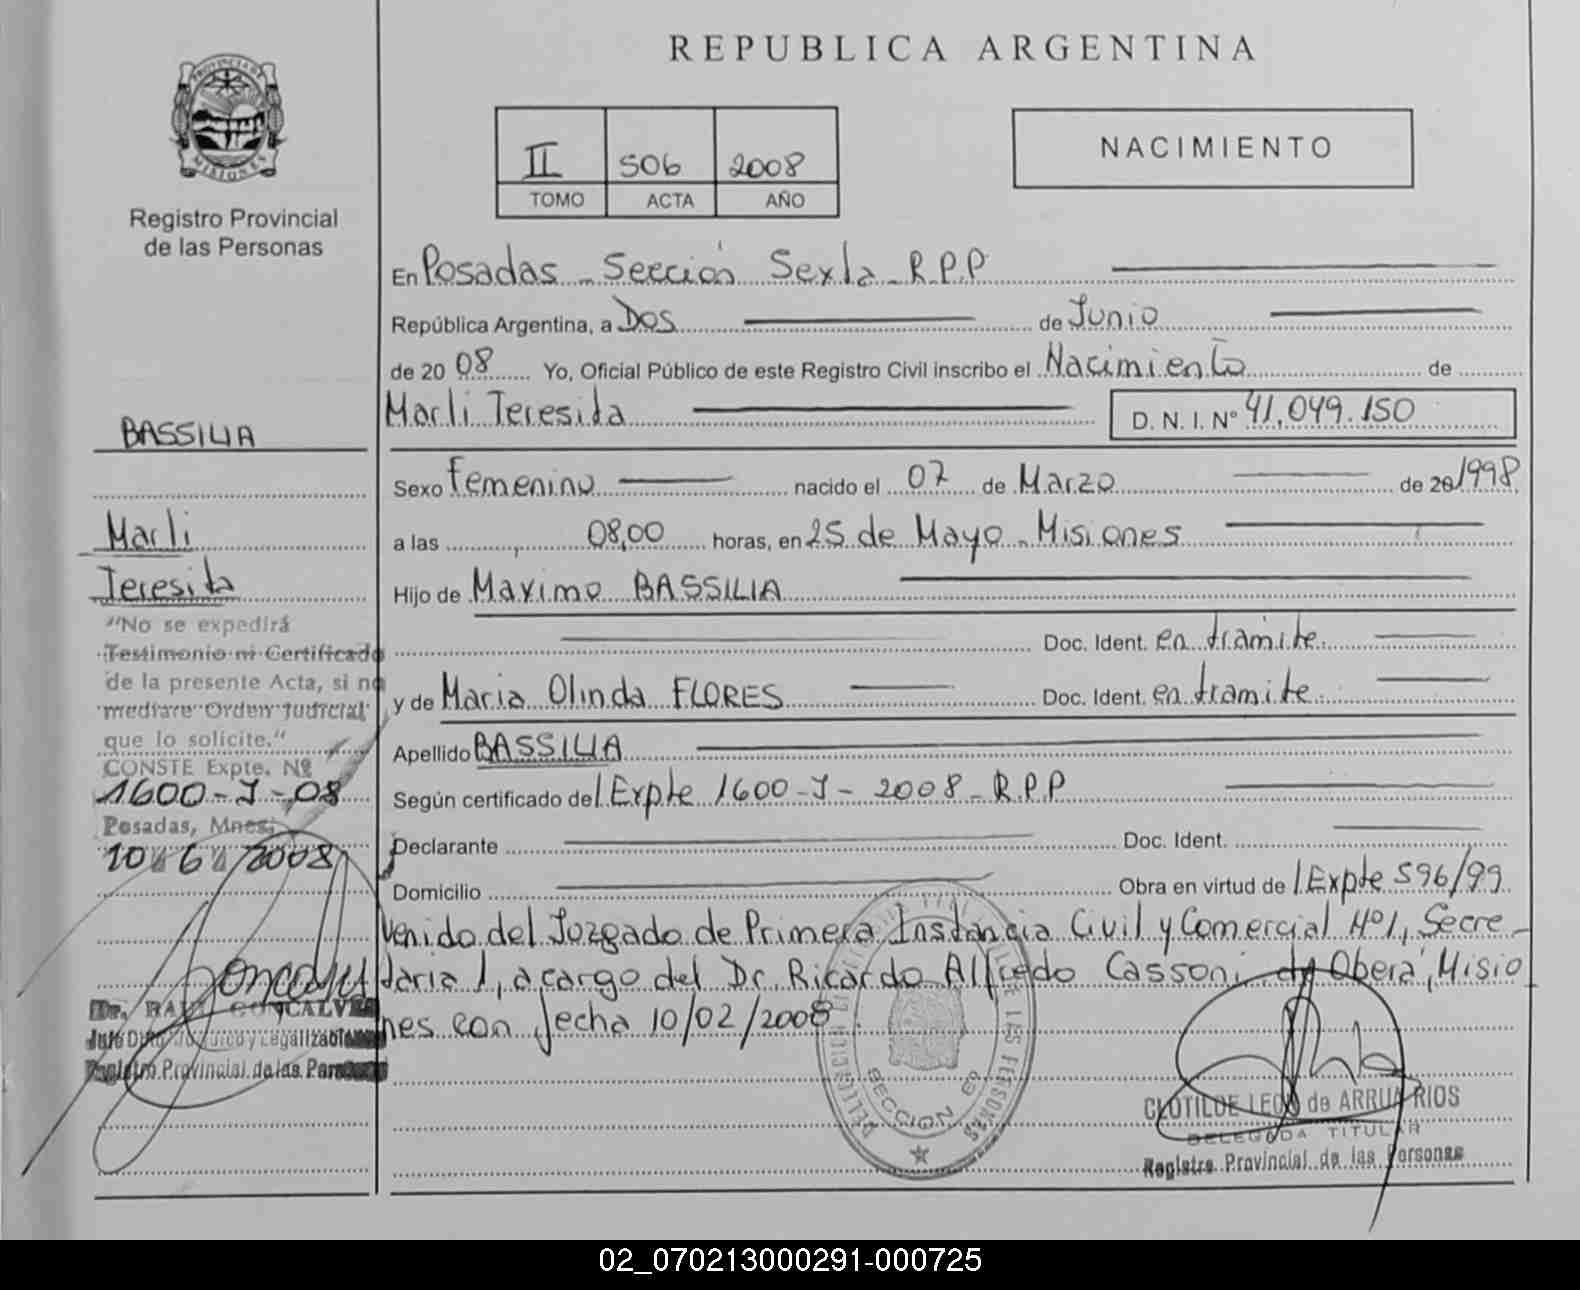 REPUBLICA ARGENTINA
PROVINCIA DE
MISIONES
Registro Provincial
de las Personas
II 506 2008
TOMO ACTA AÑO
NACIMIENTO
En Posadas - Sección Sexta - R.P.P
República Argentina, a Dos de Junio
de 2008 Yo, Oficial Público de este Registro Civil inscribo el Nacimiento de
Marli Teresita D. N. I. Nº 41.049.150
Sexo Femenino nacido el 07 de Marzo de 20 1998
a las 08,00 horas, en 25 de Mayo - Misiones
Hijo de Máximo BASSILIA
Doc. Ident. en trámite.
y de Maria Olinda FLORES Doc. Ident. en tramite.
Apellido BASSILIA
Según certificado del Expte 1600-J-2008-R.P.P
Declarante Doc. Ident.
Domicilio Obra en virtud del Expte 596/99
venido del Juzgado de Primera Instancia Civil y Comercial Nº1, Secre-
taria 1, a cargo del Dr. Ricardo Alfredo Cassoni, de Oberá, Misio
nes con fecha 10/02/2008.
BASSILIA
Marli
Teresita
"No se expedirá
Testimonio ni Certificado
de la presente Acta, si no
mediare Orden Judicial
que lo solicite."
CONSTE Expte. Nº
1600-J-08
Posadas, Mnes.
10 6 2008
Dr. RAUL GONCALVES
Jefe Dpto. Jurídico y Legalizaciones
Registro Provincial de las Personas
SECCION 6º
DE LAS PERSONAS
CLOTILDE LEON de ARRUA RIOS
DELEGADA TITULAR
Registro Provincial de las Personas
02_070213000291-000725